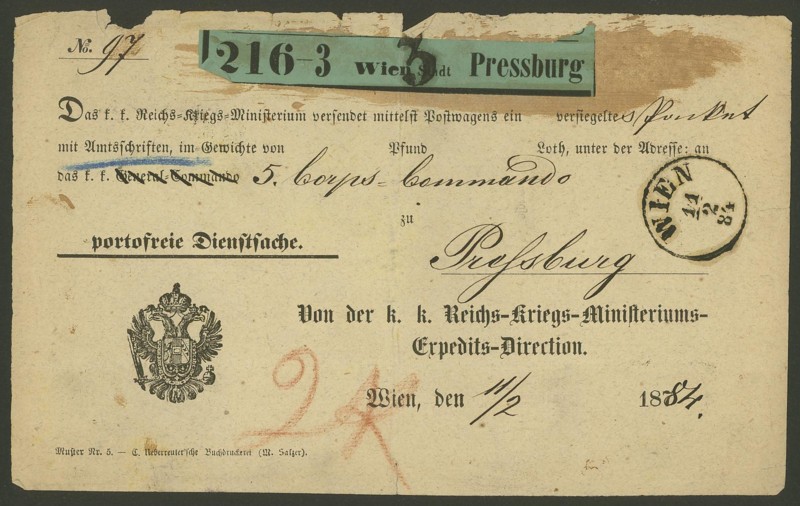 No. 97
216-3 Wien Stadt Pressburg
3
Das k. k. Reichs-Kriegs-Ministerium versendet mittelst Postwagens ein versiegeltes Packet
mit Amtsschriften, im Gewichte von Pfund Loth, unter der Adresse: an
das k. k. General-Commando 5. Corps-Commando
zu
Pressburg
WIEN
11
2
84
portofreie Dienstsache.
Von der k. k. Reichs-Kriegs-Ministeriums-
Expedits-Direction.
Wien, den 11/2 1884.
Muster Nr. 5. — C. Ueberreuter'sche Buchdruckerei (M. Salzer).